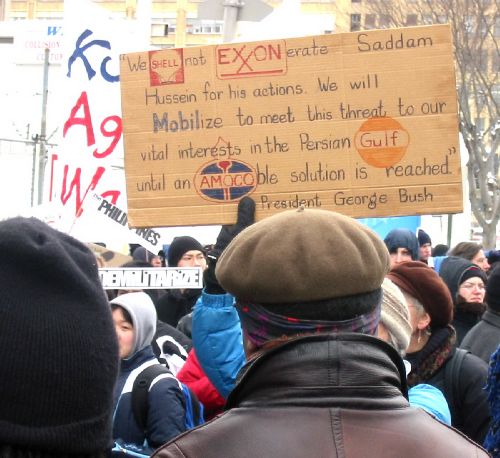 "We SHELL not EXXONerate Saddam
Hussein for his actions. We will
Mobilize to meet this threat to our
vital interests in the Persian Gulf
until an AMOCOble solution is reached."
President George Bush
Ag
War
PHILIPPINES
DEMILITARIZE!